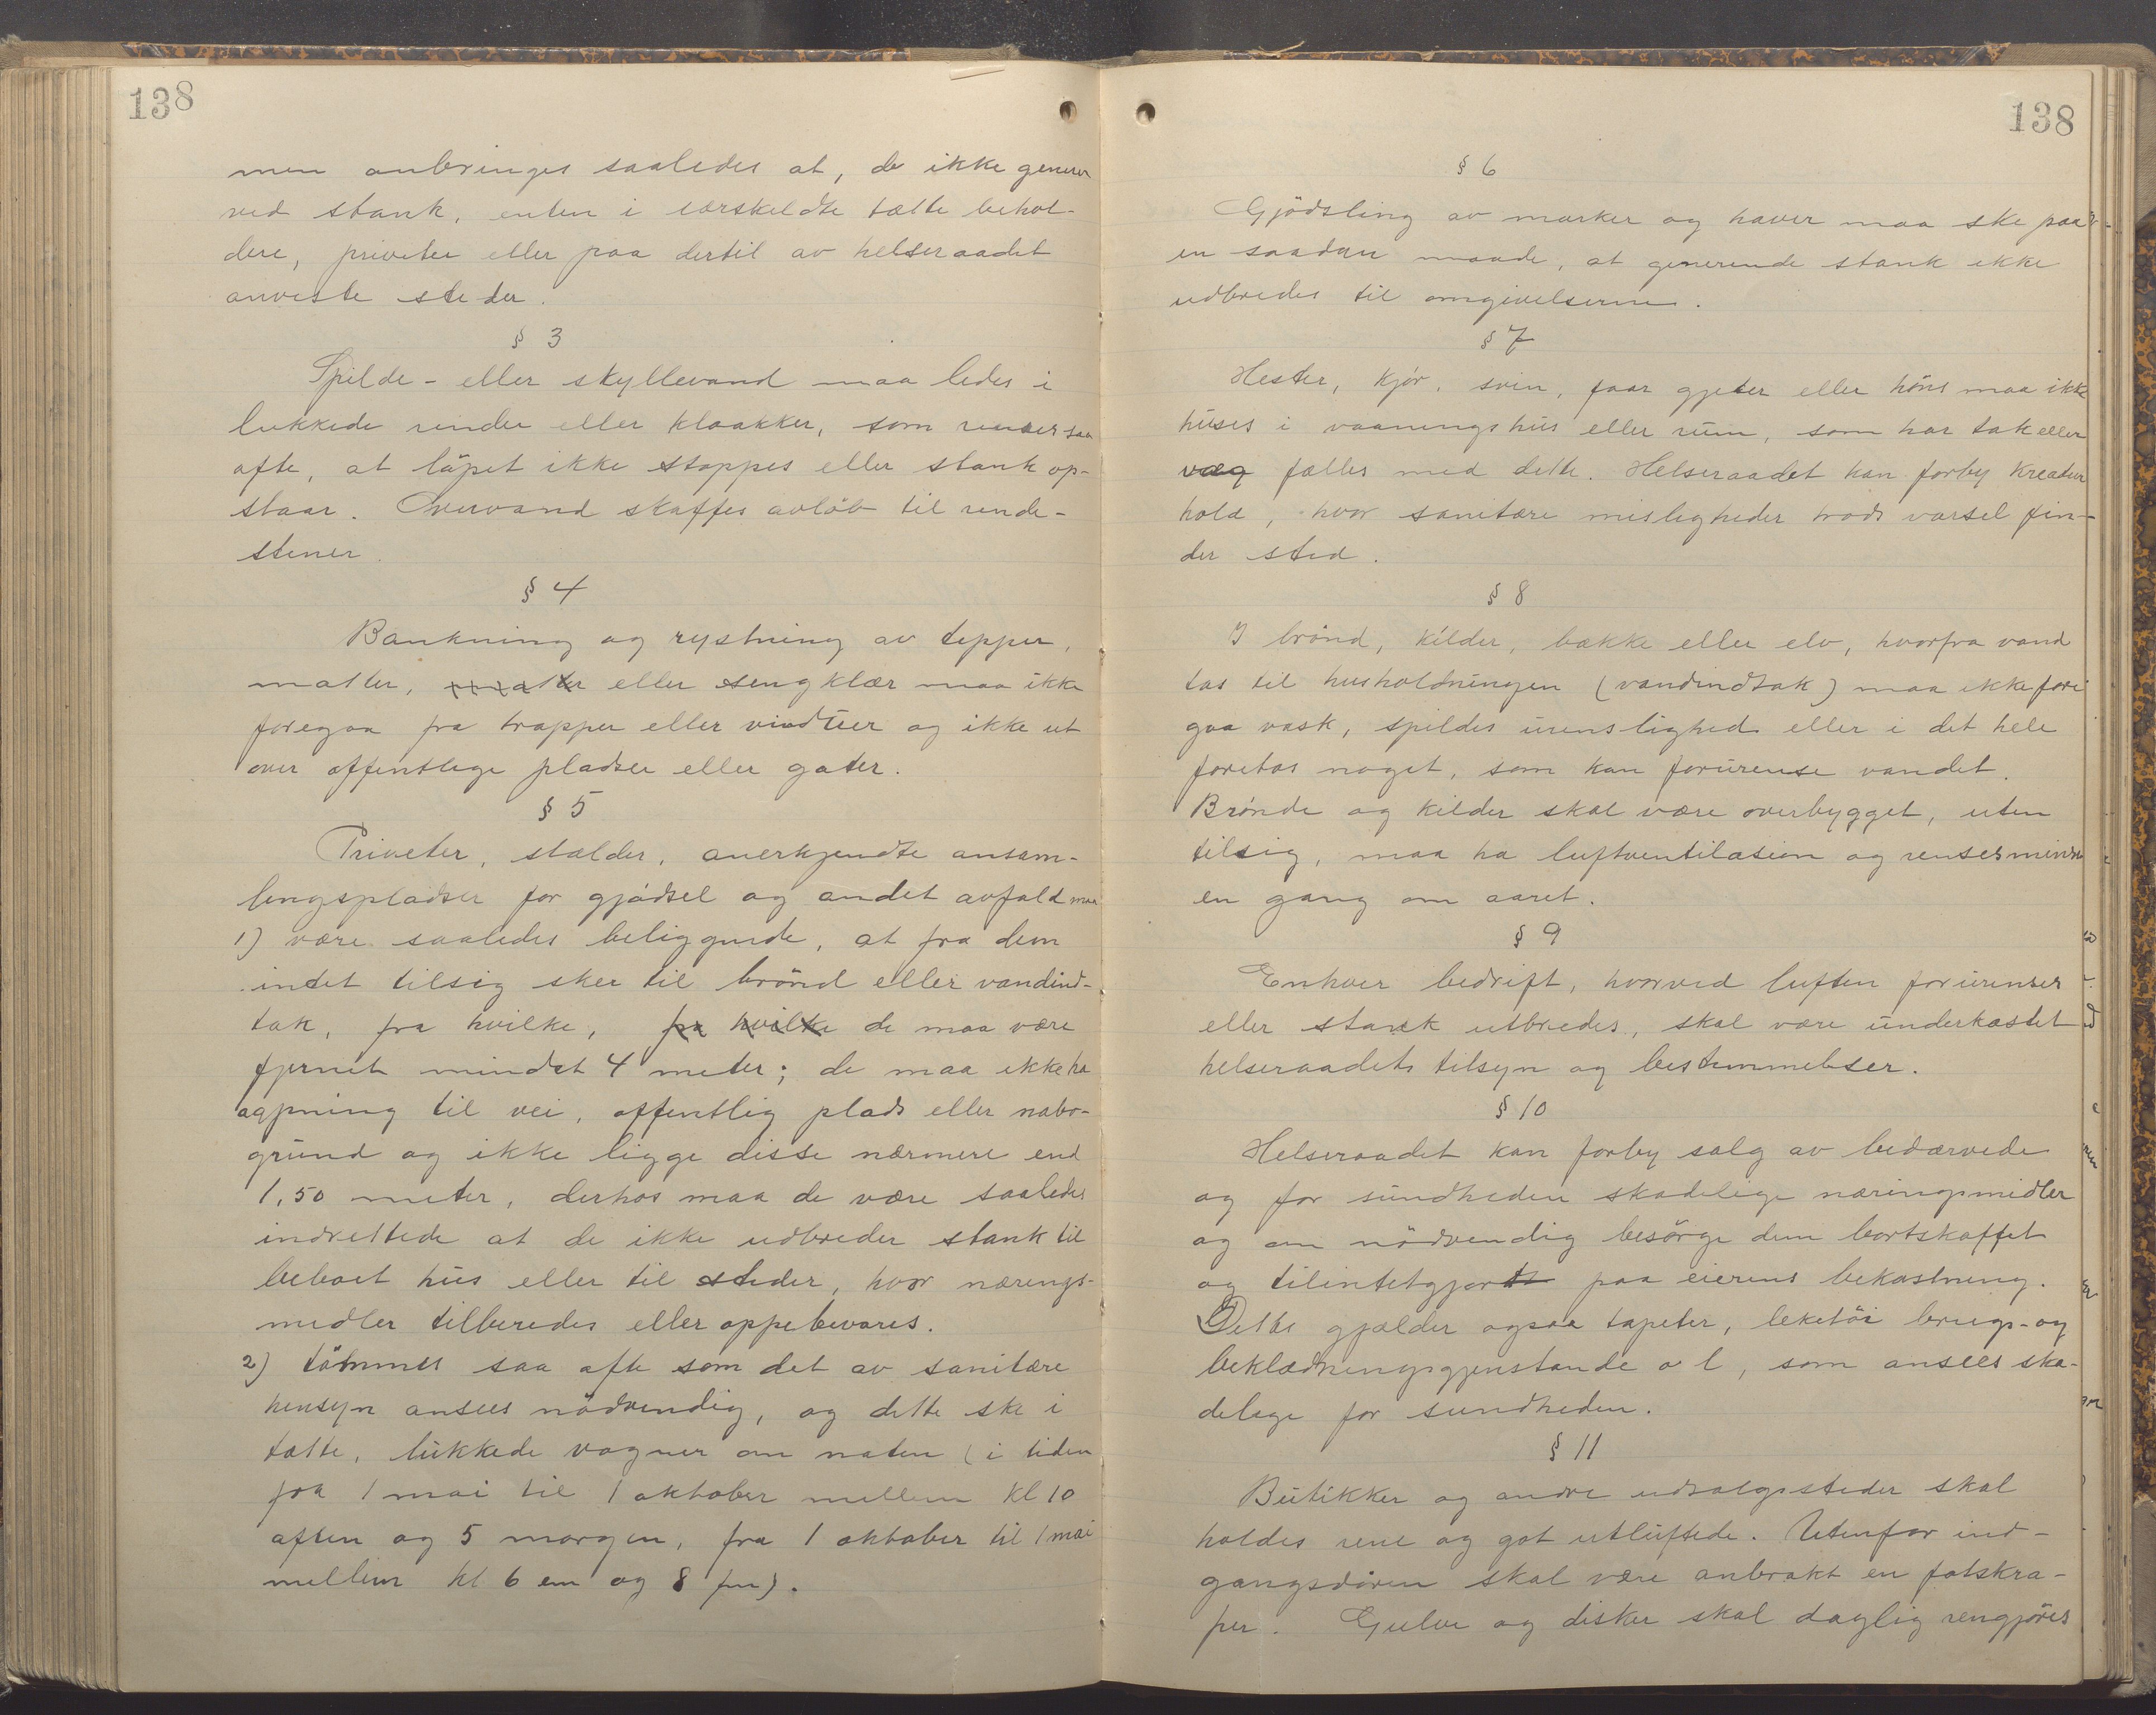 138
men anbringes saaledes at, de ikke generer
ved stank, enten i særskeldte tætte behol-
dere, priveter eller paa dertil av helseraadet
anviste steder.
§ 3
Spilde- eller skyllevand maa ledes i
lukkede render eller kloakker, som renses saa
ofte, at löpet ikke stoppes eller stank op-
staar. Overvand skaffes avløb til rende-
stener.
§ 4
Bankning og rystning av tepper,
matter, matter eller sengklær maa ikke
foregaa fra trapper eller vinduer og ikke ut
over offentlige pladser eller gater.
§ 5
Priveter, stalder, anerkjendte ansam-
lingspladser for gjödsel og andet avfald maa
1) være saaledes beliggende, at fra dem
intet tilsig sker til brönd eller vandind-
tak, fra hvilke, fra hvilke de maa være
fjernet mindst 4 meter; de maa ikke ha
aapning til vei, offentlig plads eller nabo-
grund og ikke ligge disse nærmere end
1,50 meter, derhos maa de være saaledes
indrettede at de ikke udbreder stank til
beboet hus eller til steder, hvor nærings-
midler tilberedes eller oppebevares.
2) tömmes saa ofte som det av sanitære
hensyn ansees nödvendig, og dette ske i
tætte, lukkede vogner om naten (i tiden
fra 1 mai til 1 oktober mellem kl 10
aften og 5 morgen, fra 1 oktober til 1 mai
mellem kl 6 em og 8 fm).
138
§ 6
Gjödsling av marker og haver maa ske paa
en saadan maade, at generende stank ikke
udbredes til omgivelserne.
§ 7
Hester, kjör, svin, faar gjeter eller höns maa ikke
huses i vaaningshus eller rum, som har tak eller
væg fælles med dette. Helseraadet kan forby kreatur
hold, hvor sanitære misligheder trods varsel fin-
der sted.
§ 8
I brönd, kilder, bække eller elv, hvorfra vand
tas til husholdningen (vandindtak) maa ikke fore
gaa vask, spildes urenslighed eller i det hele
foretas noget, som kan forurense vandet.
Brönde og kilder skal være overbygget, uten
tilsig, maa ha luftventilasion og renses mindst
en gang om aaret.
§ 9
Enhver bedrift, hvorved luften forurenses
eller stank utbredes, skal være underkastet
helseraadets tilsyn og bestemmelser.
§ 10
Helseraadet kan forby salg av bedærvede
og for sundheden skadelige næringsmidler
og om nödvendig besörge dem bortskaffet
og tilintetgjort paa eierens bekostning.
Dette gjælder ogsaa tapeter, leketöi brugs- og
beklædningsgjenstande o l, som ansees ska-
delige for sundheden.
§ 11
Butikker og andre udsalgssteder skal
holdes rene og got utluftede. Utenfor ind-
gangsdören skal være anbrakt en fotskra-
per. Gulve og disker skal daglig rengjöres